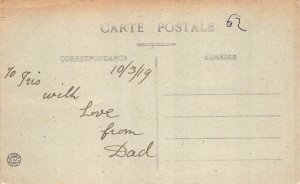 CARTE POSTALE
62
CORRESPONDANCE
ADRESSE
10/3/19
To Iris
with
Love
from
Dad